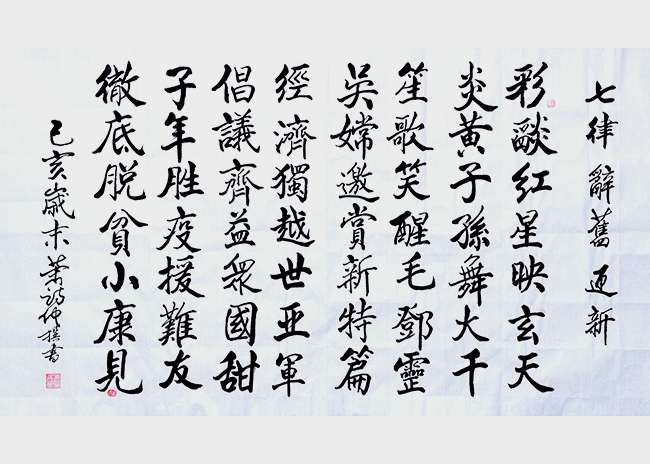 七律辭舊迎新
彩燄红星映玄天
炎黄子孫舞大千
笙歌笑醒毛鄧靈
吴嫦邀賞新特篇
經濟獨越世亚軍
倡議齊益衆國甜
子年胜疫援難友
徹底脱貧小康見
己亥歲末蕭仲書